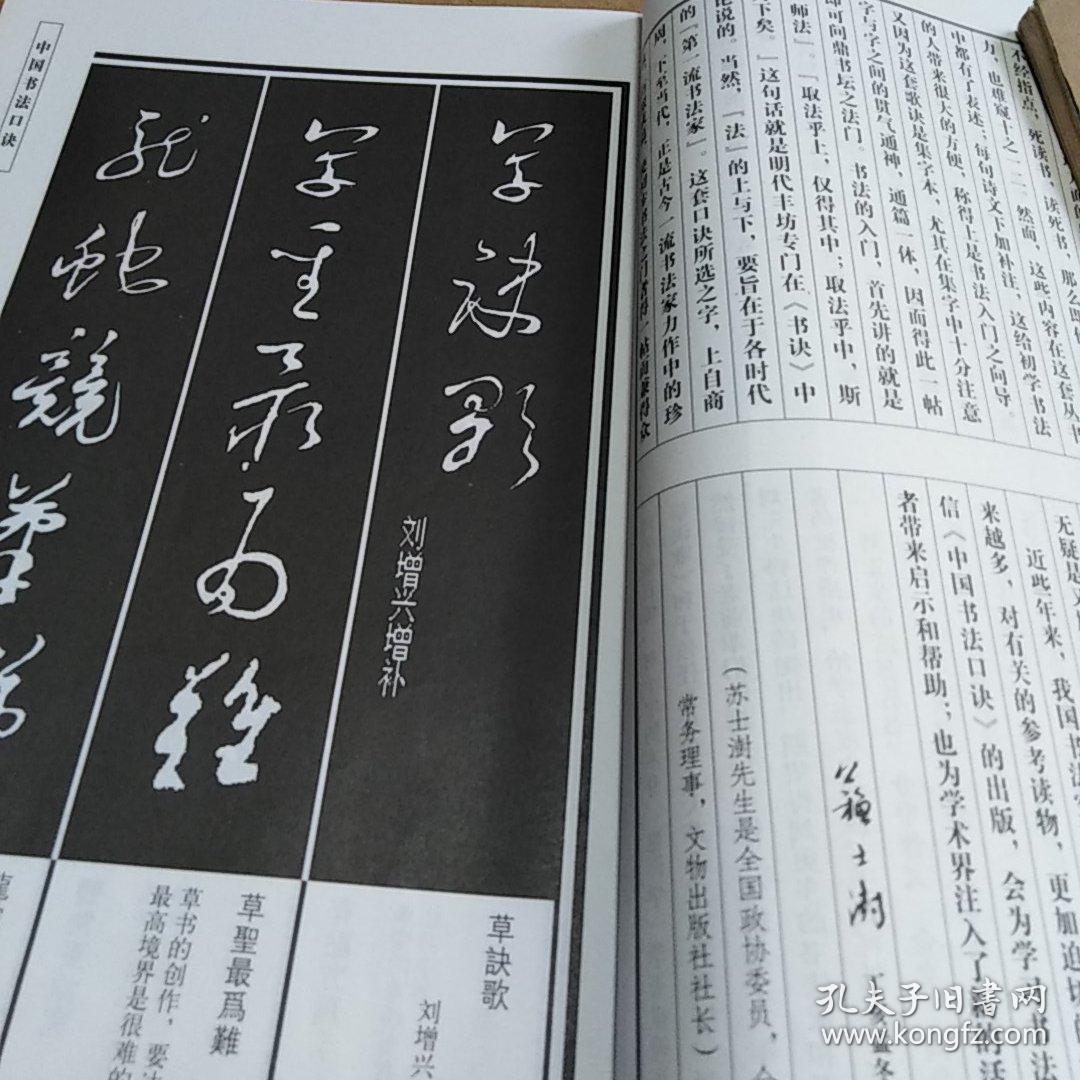 中国书法口诀
草訣歌
刘增兴增补
草聖最為難
龍蛇競筆
草訣歌
刘增兴
草聖最爲難
草书的创作，要
最高境界是很难的
龍
不经指点，死读书，读死书，那么即使
力，也难窥十之一二。然而，这些内容在这套丛书
中都有了表述；每句诗文下加补注，这给初学书法
的人带来很大的方便，称得上是书法入门之向导。
又因为这套歌诀是集字本，尤其在集字中十分注意
字与字之间的贯气通神，通篇一体，因而得此一帖
即可问鼎书坛之法门。书法的入门，首先讲的就是
师法』。『取法乎上，仅得其中；取法乎中，斯
下矣。』这句话就是明代丰坊专门在《书诀》中
论说的。当然，『法』的上与下，要旨在于各时代
的『第一流书法家』。这套口诀所选之字，上自商
周，下至当代，正是古今一流书法家力作中的珍
无疑是
近些年来，我国书法
来越多，对有关的参考读物，更加迫切
信《中国书法口诀》的出版，会为学习书法
者带来启示和帮助；也为学术界注入了
苏士澍
（苏士澍先生是全国政协委员，
常务理事，文物出版社社长）
孔夫子旧书网
www.kongfz.com